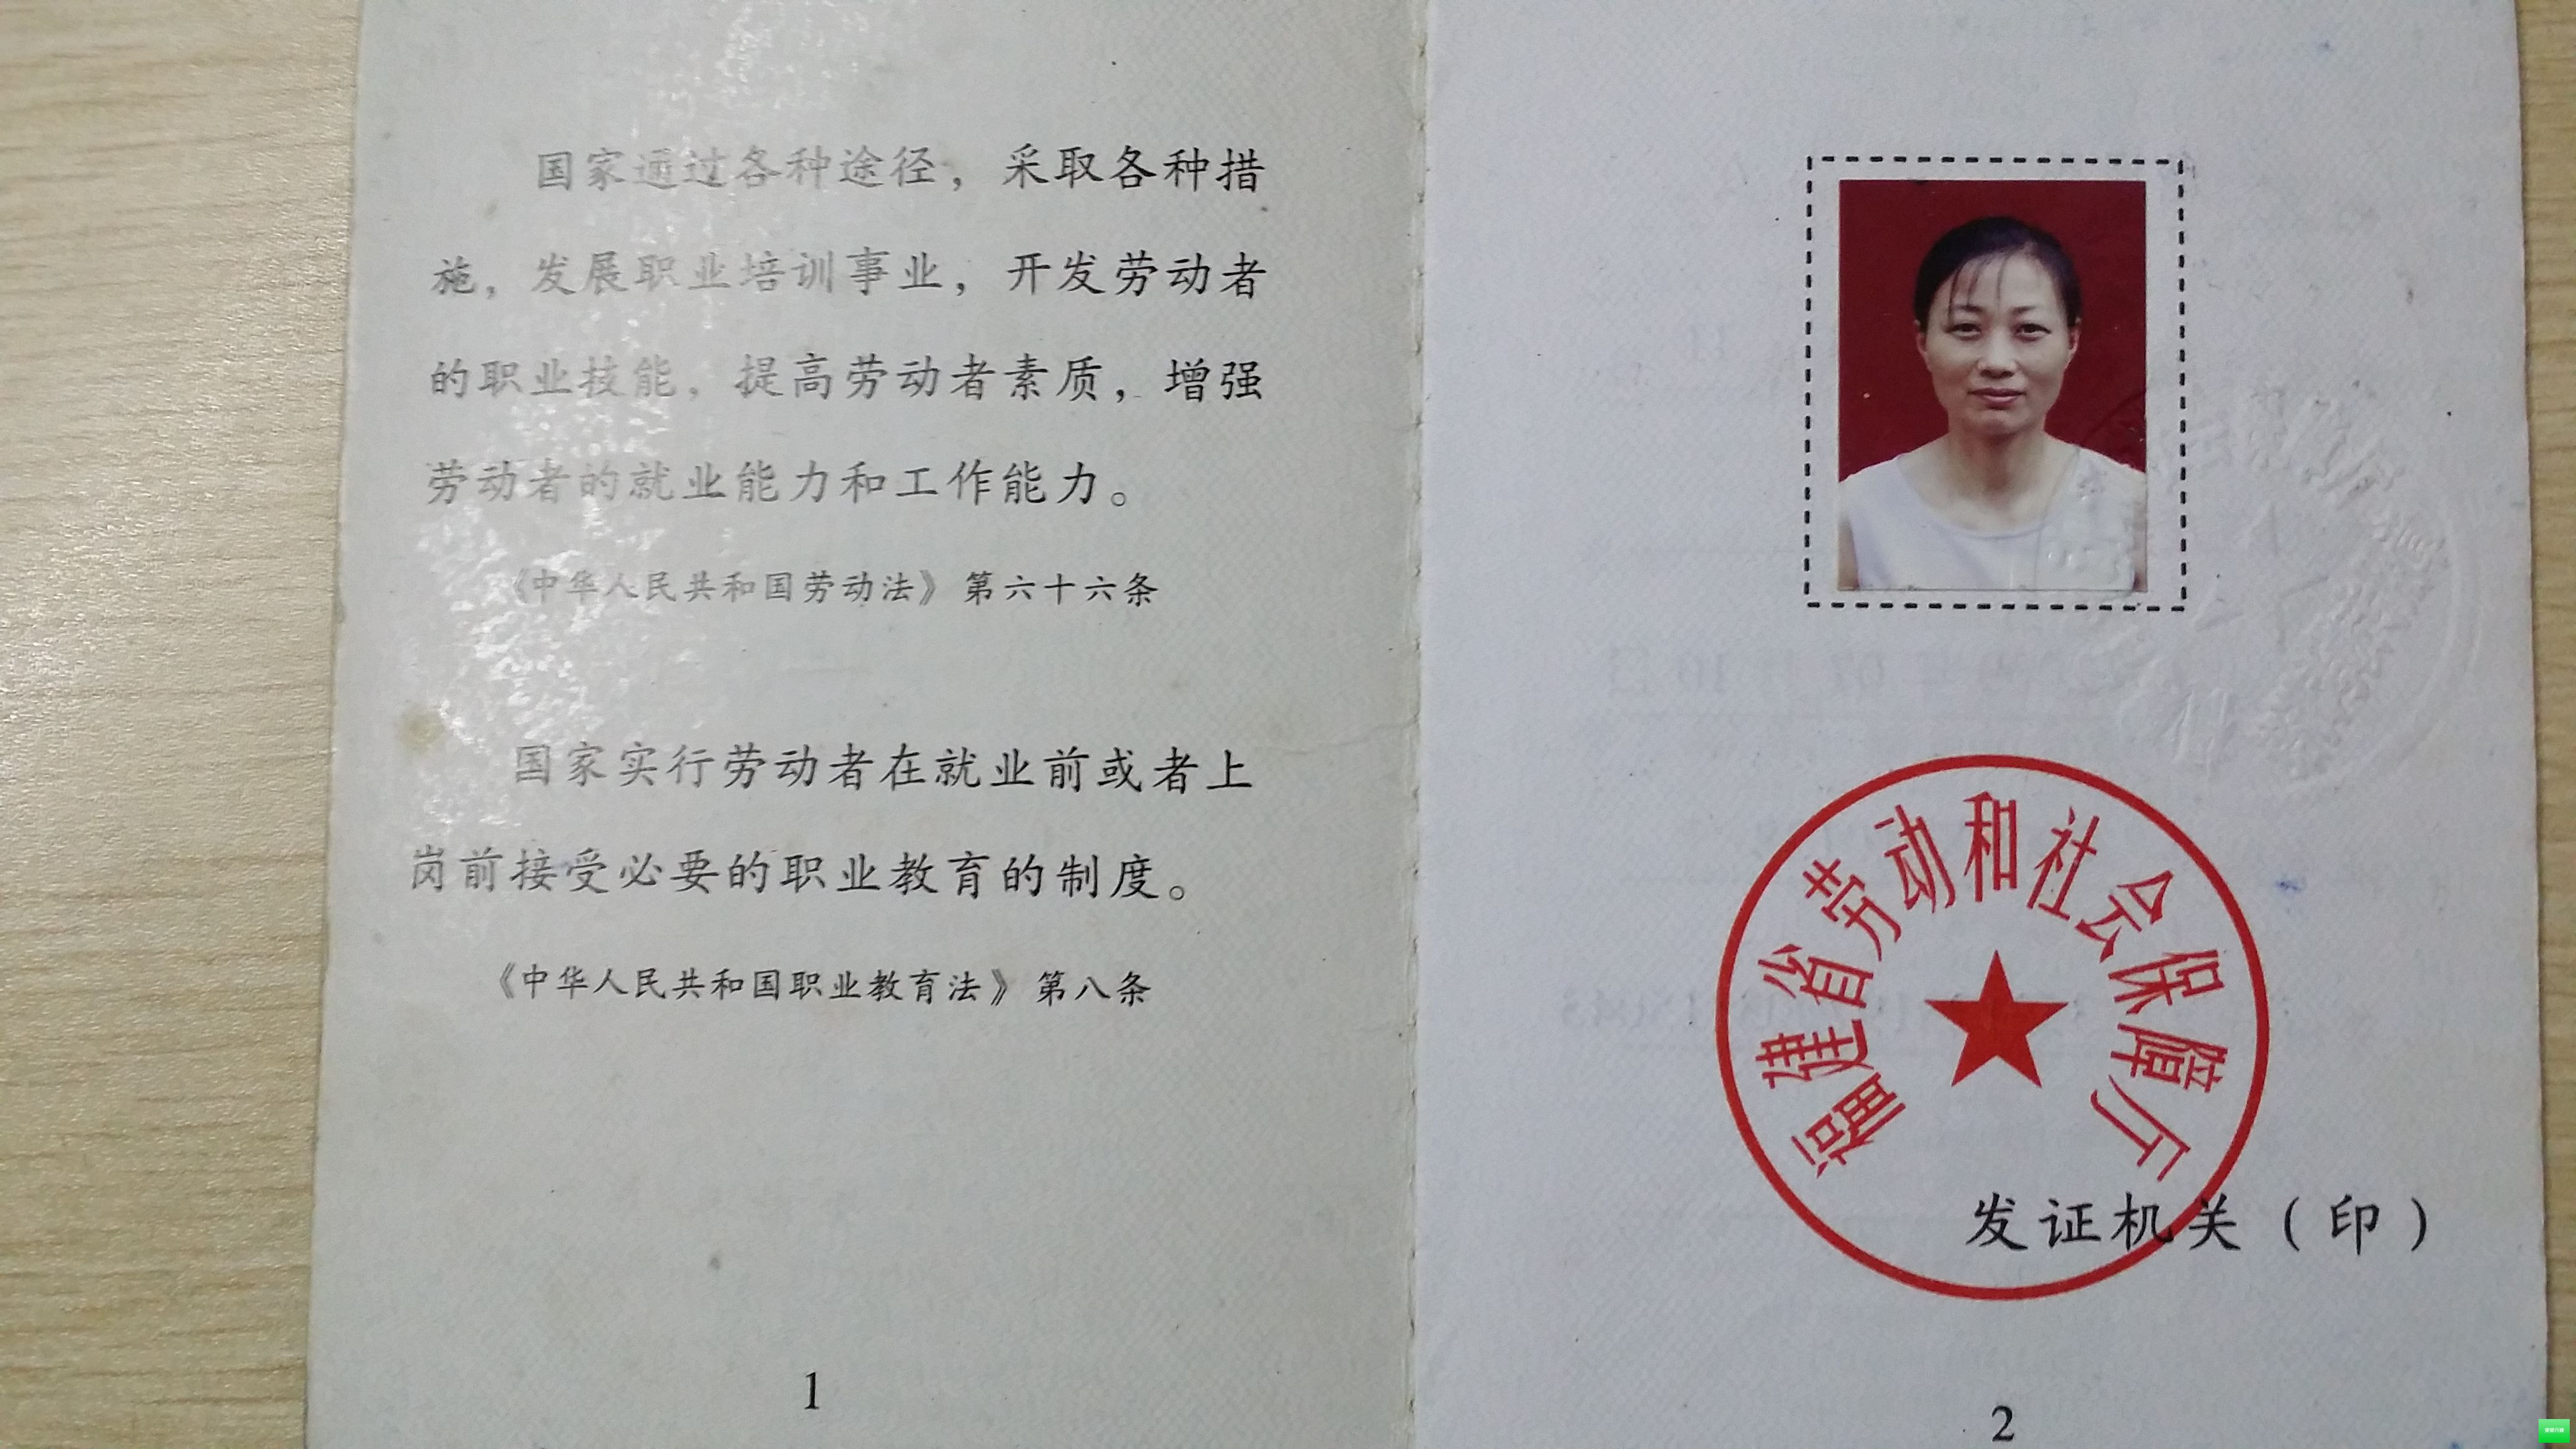 国家通过各种途径，采取各种措
施，发展职业培训事业，开发劳动者
的职业技能，提高劳动者素质，增强
劳动者的就业能力和工作能力。
《中华人民共和国劳动法》第六十六条
国家实行劳动者在就业前或者上
岗前接受必要的职业教育的制度。
《中华人民共和国职业教育法》第八条
1
福建省劳动和社会保障厅
发证机关（印）
2